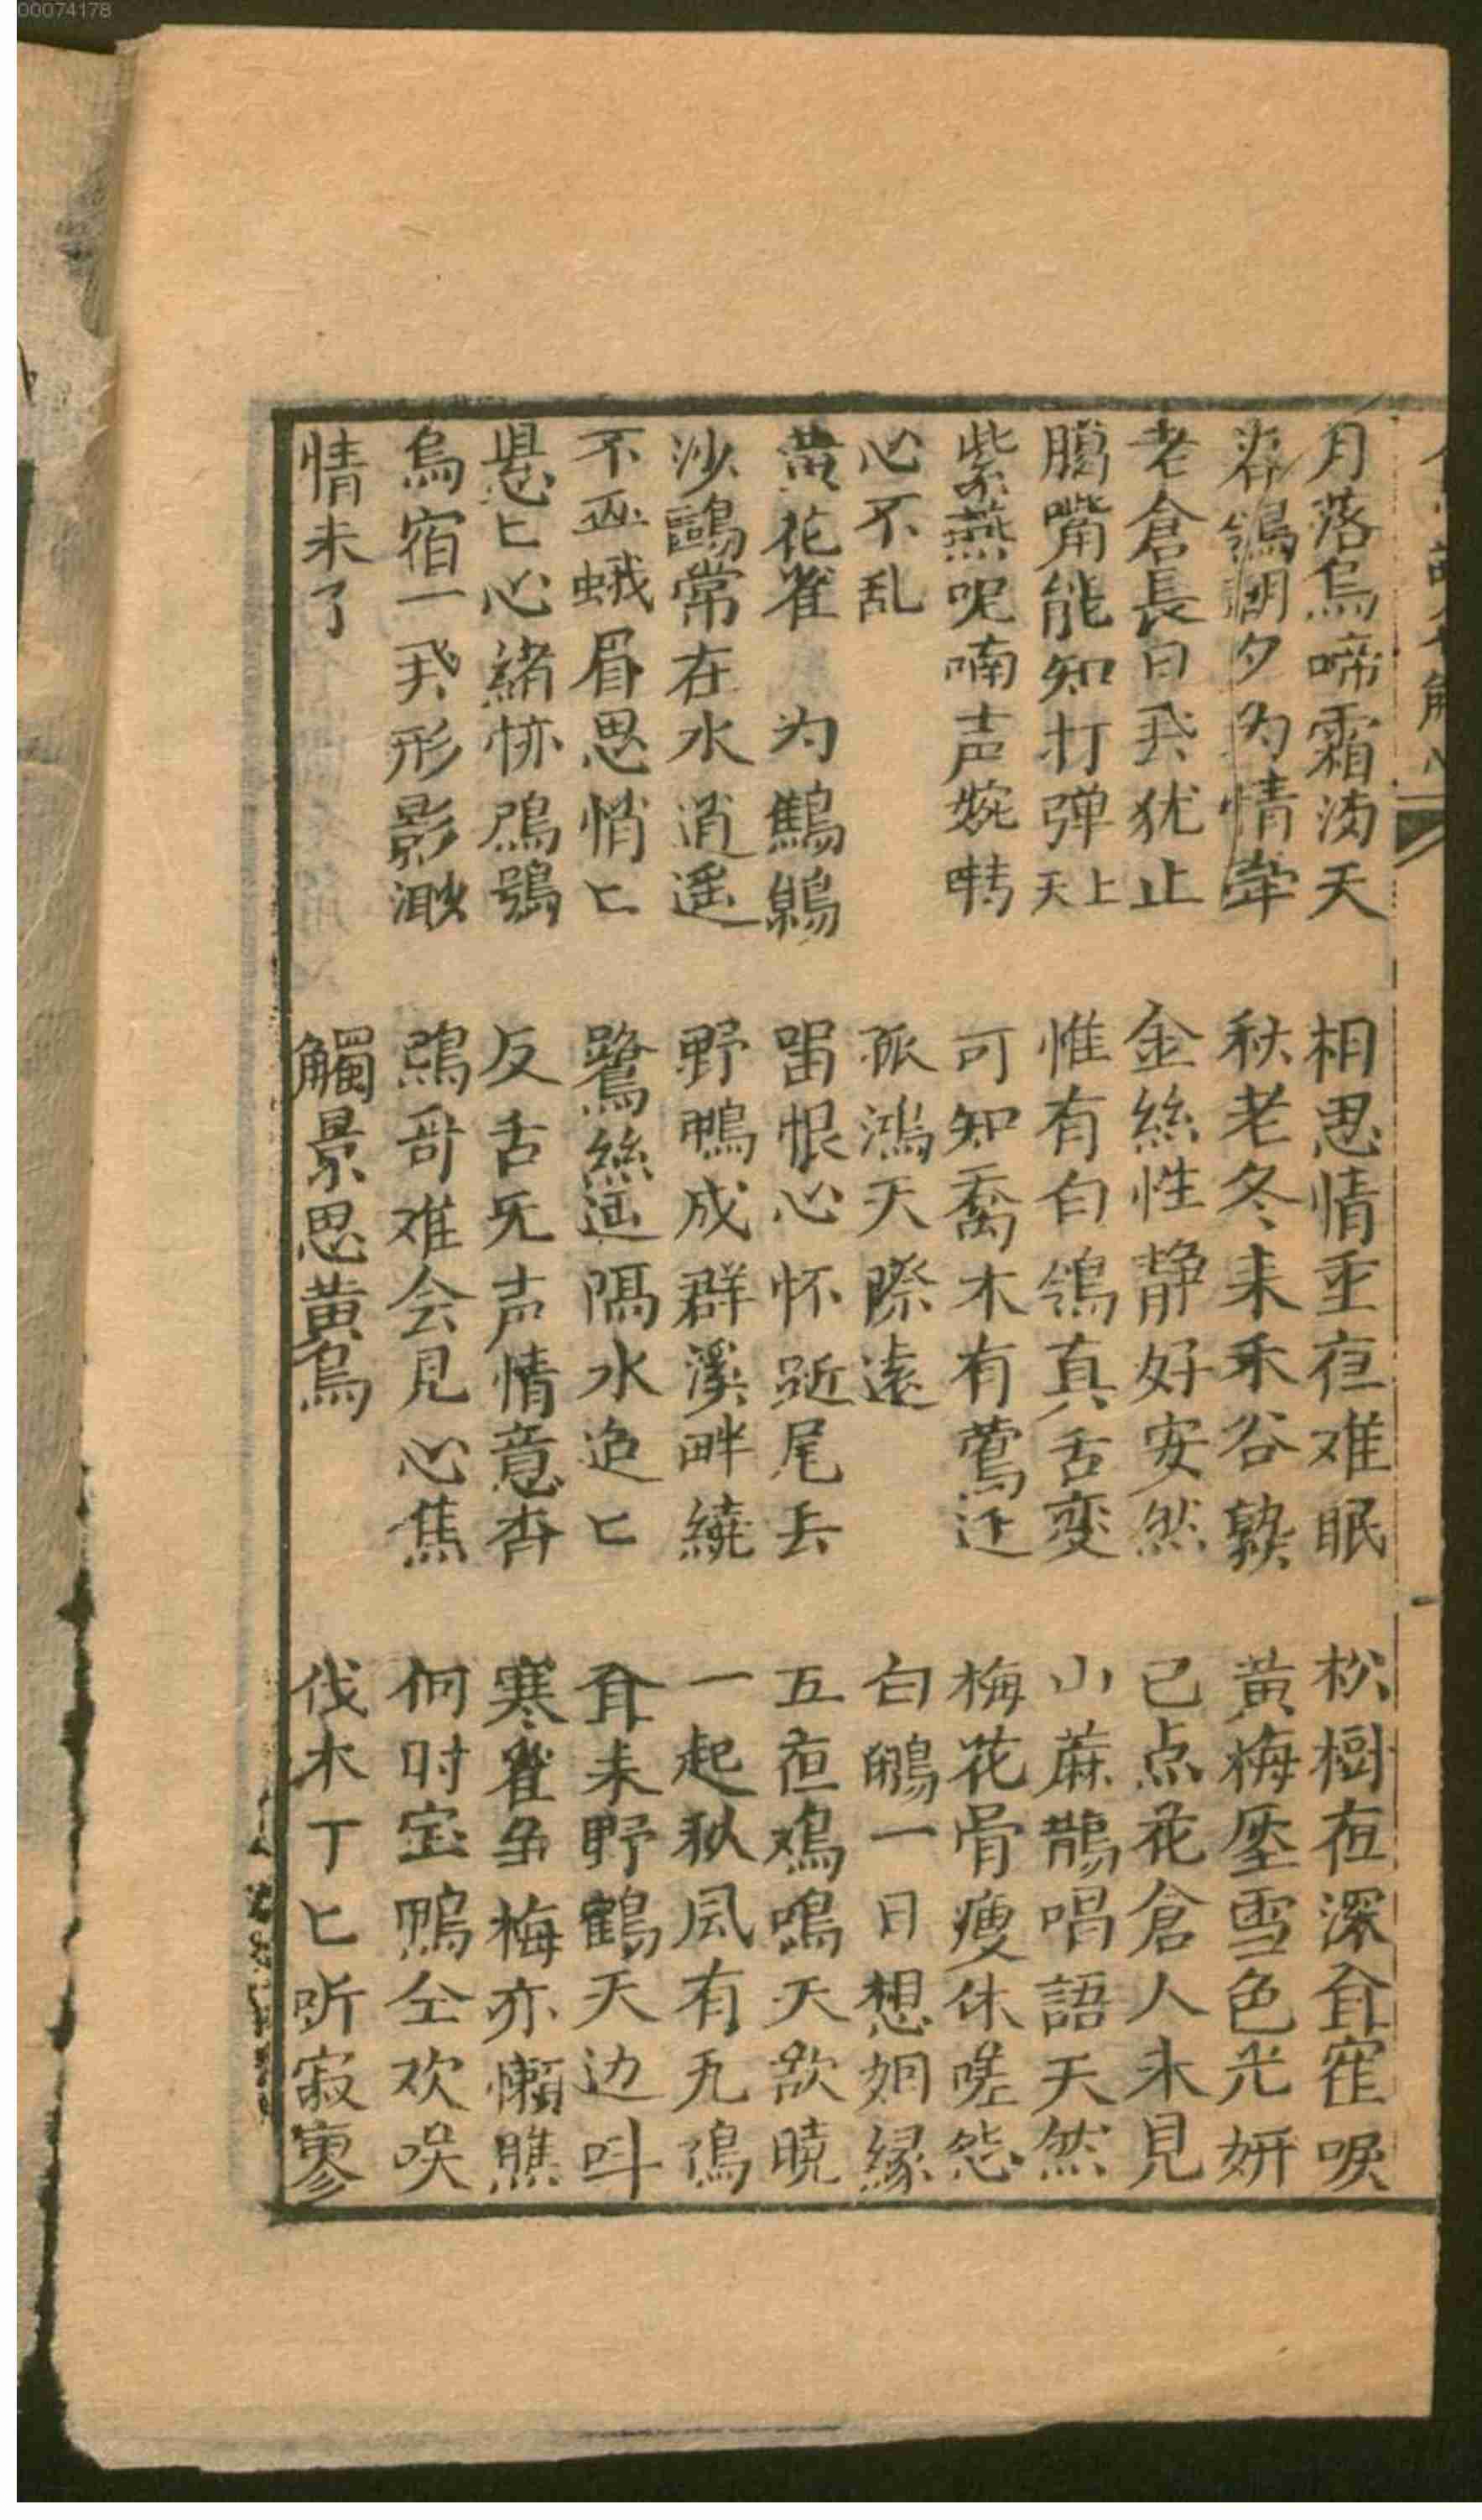 00074178
月落烏啼霜满天 相思情重夜难眠 松樹夜深耳寉唳
鴿朝夕为情牵 秋老冬来禾谷熟 黄梅壓雪色光妍
老倉長日飛犹止 金絲性静好安然 已点花倉人未見
臈嘴能知打弹天上 惟有白鴿真舌変 山蔴鵲唱語天然
紫燕呢喃声婉囀 可知喬木有鶯迁 梅花骨瘦休嗟怨
心不乱 孤鴻天際遠 白鷴一日想姻縁
黄花雀 为鷦鷯 留恨心怀跅尾去 五夜鳮鳴天欲曉
沙鷗常在水逍遥 野鴨成群溪畔繞 一起秋風有九鳫
不画蛾眉思悄匕 鷺絲遥隔水迢匕 耳来野鶴天边叫
悬匕心緒怀鴟鴞 反舌无声情意杳 寒雀争梅亦懶瞧
烏宿一飛形影渺 鸚哥难会见心焦 何时宝鴨仝欢唉
情未了 觸景思黄鳥 伐木丁匕听寂寥